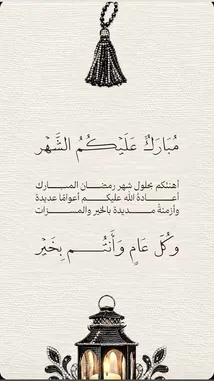 مُبَارَكٌ عَلَيْكُمُ الشَّهْر
أهنئكم بحلول شهر رمضان المبارك
أعادهُ الله عليكم أعوامًا عديدة
وأزمنةً مديدة بالخير والمسرات
وَكُلّ عَامٍ وَأَنتُم بِخَيْر